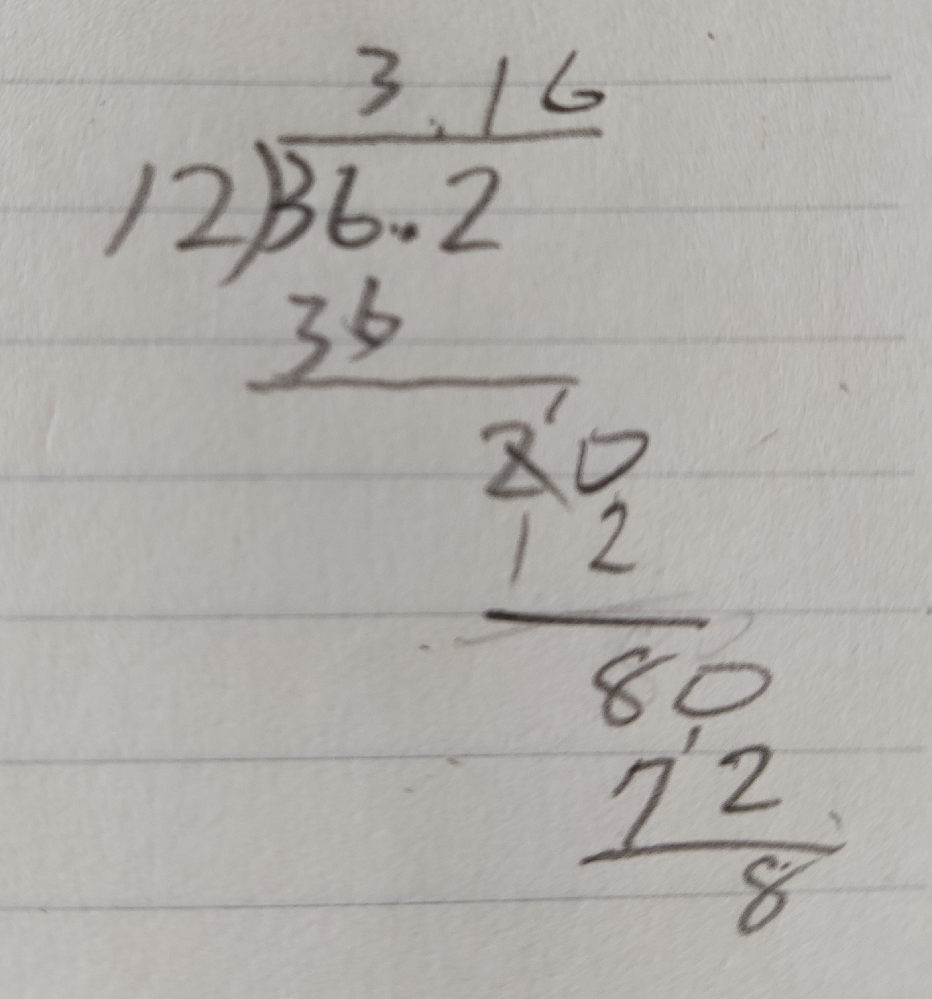 3.16
12)36..2
36
20
12
80
72
8